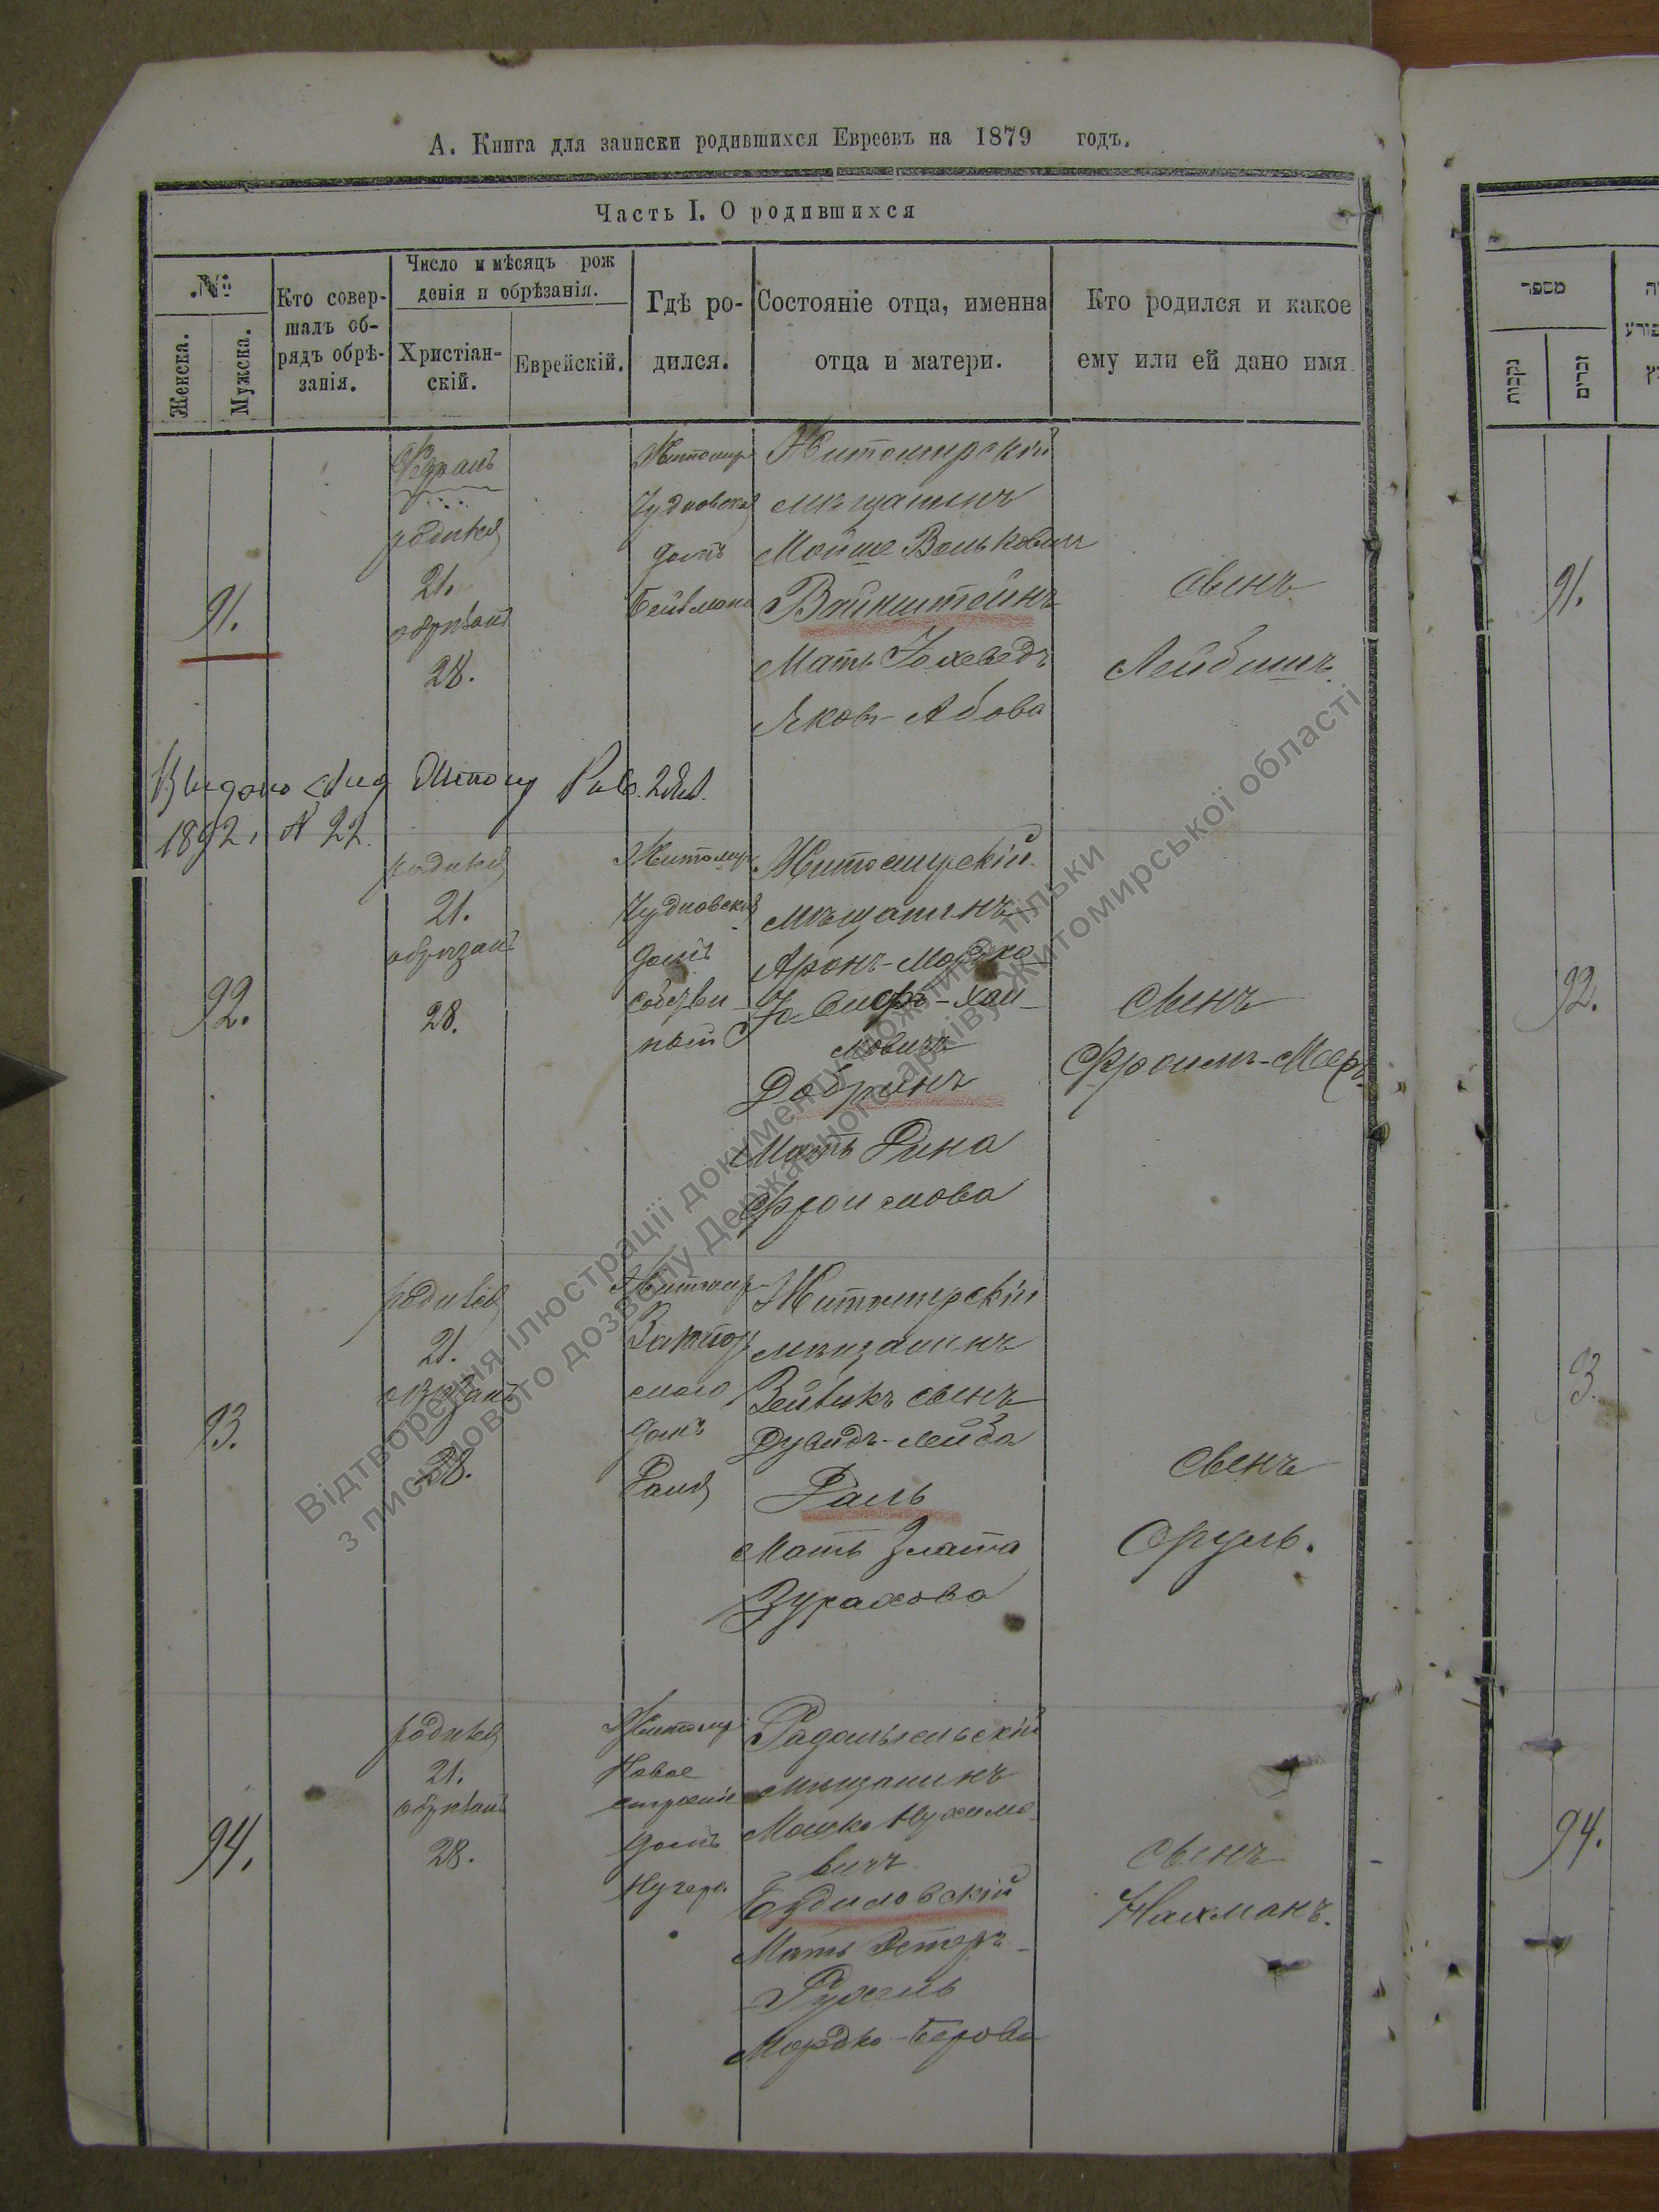 А. Книга для записки родившихся Евреевъ на 1879 годъ.
Часть I. О родившихся
№
Женска.
Мужска.
Кто совер-
шалъ об-
рядъ обрѣ-
занія.
Число и мѣсяцъ рож
денія и обрѣзанія.
Христіан-
скій.
Еврейскій.
Гдѣ ро-
дился.
Состояніе отца, именна
отца и матери.
Кто родился и какое
ему или ей дано имя
91.
родился
21.
обрѣзанъ
28.
Житомир
Чудновская
домъ
Житомирскій
мѣщанинъ
Мойше Волькович
Вайнштейнъ
Мать Йохеведъ
Яковъ-Абова
сынъ
Лейбишъ
Выдано
1892, № 22.
92.
родился
21.
обрѣзанъ
28.
Житомир
Чудновская
домъ
Житомирскій
мѣщанинъ
Аронъ-Мордко
Іосифъ-Хаи-
мовичъ
Добринъ
Мать
Фроимова
сынъ
Фроимъ-Меер
93.
родился
21.
обрѣзанъ
28.
Житомир
домъ
Раля
Житомирскій
мѣщанинъ
Зейликъ сынъ
Дувидъ-Лейба
Раль
Мать Злата
сынъ
Сруль.
94.
родился
21.
обрѣзанъ
28.
Житомир
Новое
строеніе
домъ
Радомысльскій
мѣщанинъ
Мошко Нухимо
вичъ
Будиловскій
Мать Эстеръ-
Рухель
Мордко-Берова
сынъ
Нахманъ.
מספר
נקבות
זכרים
91.
92.
93.
94.
Відтворення ілюстрації документу можливо тільки
з письмового дозволу Державного архіву Житомирської області